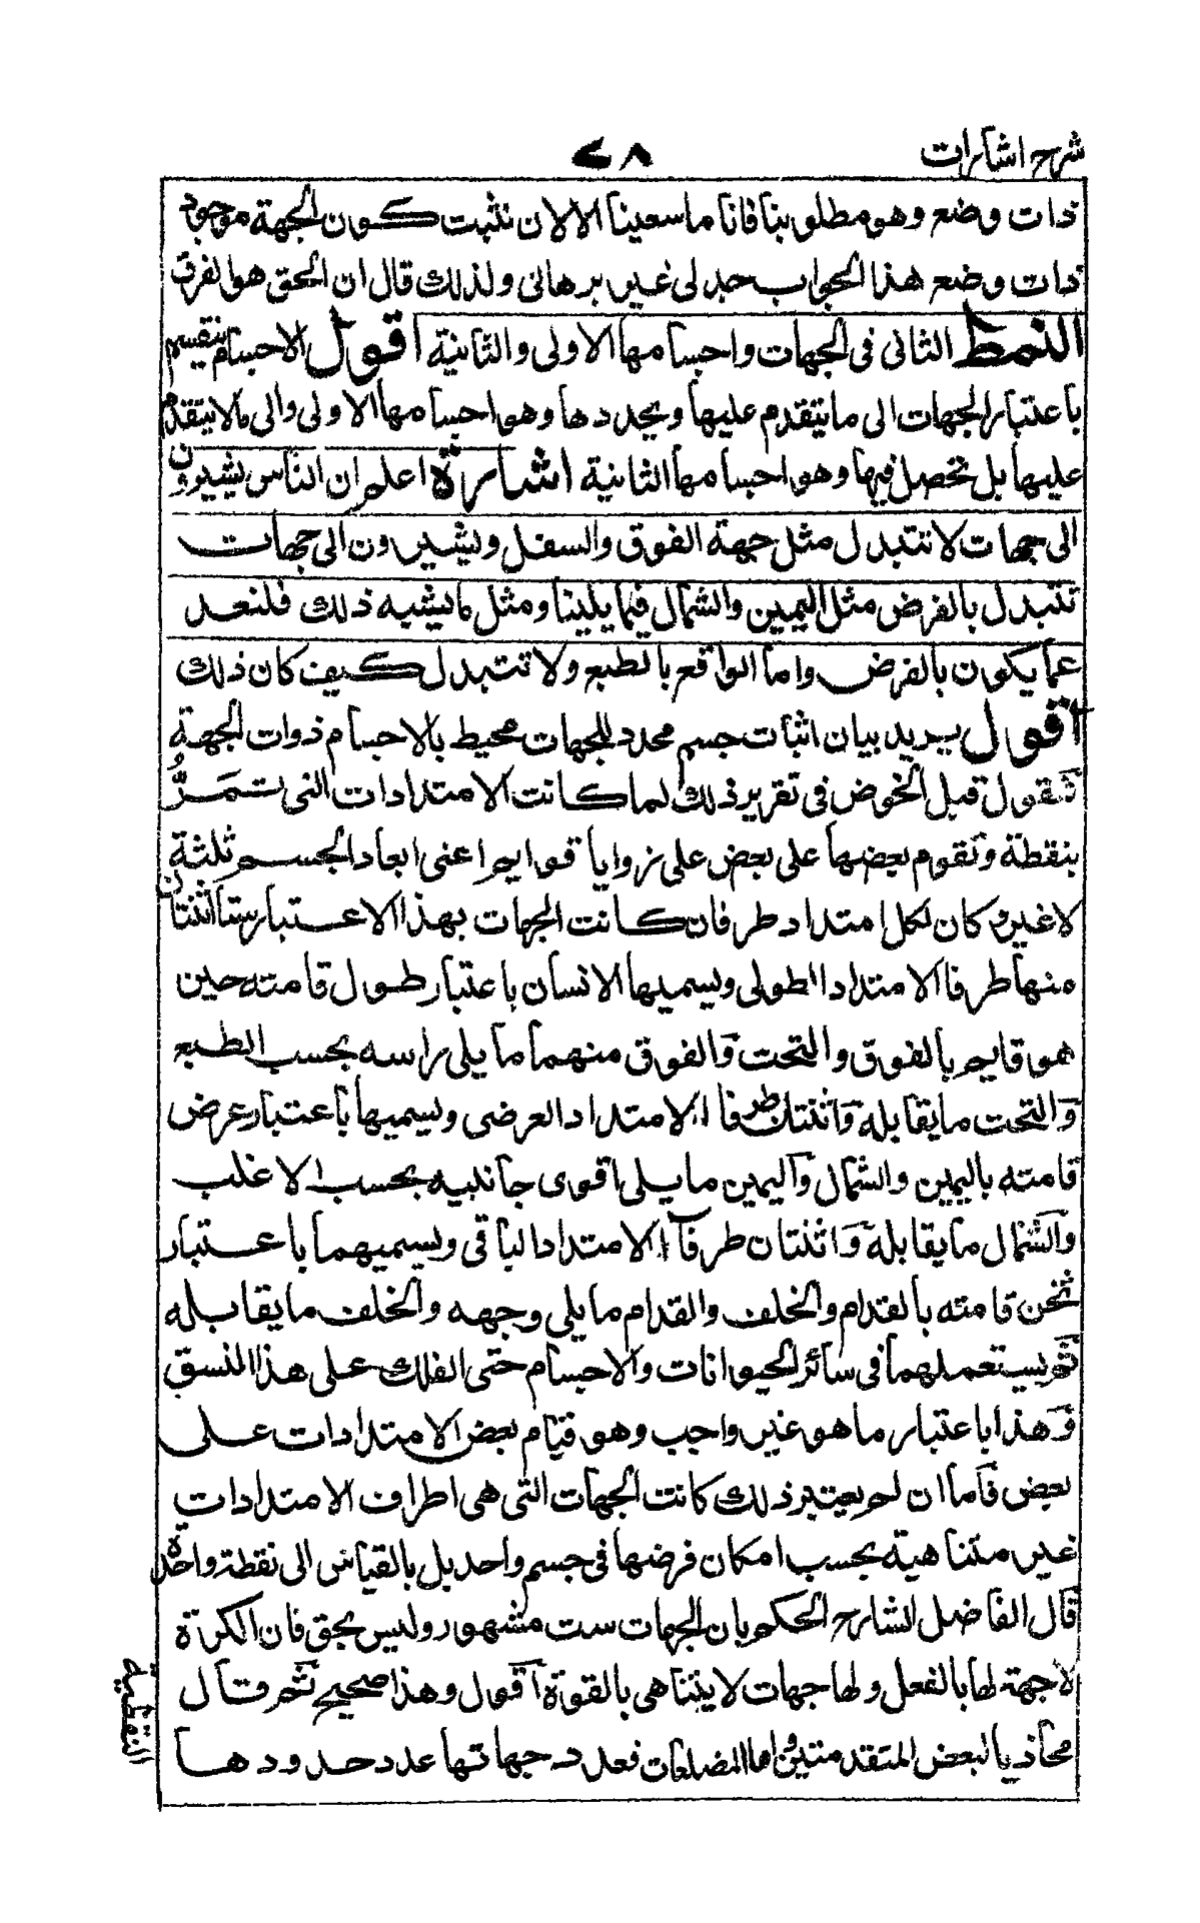 شرح اشارات
٧٨
ذات وضع وهو مطلوبنا فانا ما سعينا الا لان نثبت كون الجهة موجود
ذات وضع هذا الجواب جدلى غير برهانى ولذلك قال ان الحق هو الفرق
النمط الثانى فى الجهات واجسامها الاولى والثانية اقول الاجسام تنقسم
باعتبار الجهات الى ما يتقدم عليها ويحددها وهو اجسامها الاولى والى ما لا يتقدم
عليها بل تحصل فيها وهو اجسامها الثانية اشارة اعلم ان الناس يشيرون
الى جهات لا تتبدل مثل جهة الفوق والسفل ويشيرون الى جهات
تتبدل بالفرض مثل اليمين والشمال فيما يلينا ومثل ما يشبه ذلك فلنعد
عما يكون بالفرض واما الواقع بالطبع ولا تتبدل كيف كان ذلك
اقول يريد بيان اثبات جسم محدد للجهات محيط بالاجسام ذوات الجهة
فنقول قبل الخوض فى تقرير ذلك لما كانت الامتدادات التى تمرُّ
بنقطة وتقوم بعضها على بعض على زوايا قوايم اعنى ابعاد الجسم ثلثة
لا غير كان لكل امتداد طرفان كانت الجهات بهذا الاعتبار ستا اثنتان
منها طرفا الامتداد الطولى ويسميها الانسان باعتبار طول قامته حين
هو قايم بالفوق والتحت والفوق منهما ما يلى راسه بحسب الطبع
والتحت ما يقابله واثنتان طرفا الامتداد العرضى ويسميها باعتبار عرض
قامته باليمين والشمال واليمين ما يلى اقوى جانبيه بحسب الاغلب
والشمال ما يقابله واثنتان طرفا الامتداد الباقى ويسميهما باعتبار
ثخن قامته بالقدام والخلف والقدام ما يلى وجهه والخلف ما يقابله
ثم يستعملهما فى سائر الحيوانات والاجسام حتى الفلك على هذا النسق
وهذا باعتبار ما هو غير واجب وهو قيام بعض الامتدادات على
بعض فاما ان لم يعتبر ذلك كانت الجهات التى هى اطراف الامتدادات
غير متناهية بحسب امكان فرضها فى جسم واحد بل بالقياس الى نقطة واحدة
قال الفاضل الشارح الحكم بان الجهات ست مشهور وليس بحق فان الكرة
لا جهة لها بالفعل ولها جهات لا يتناهى بالقوة اقول وهذا صحيح ثم قال
محاذيا لبعض المتقدمتين واما المضلعات فعدد جهاتها عدد حدودها
النقطية